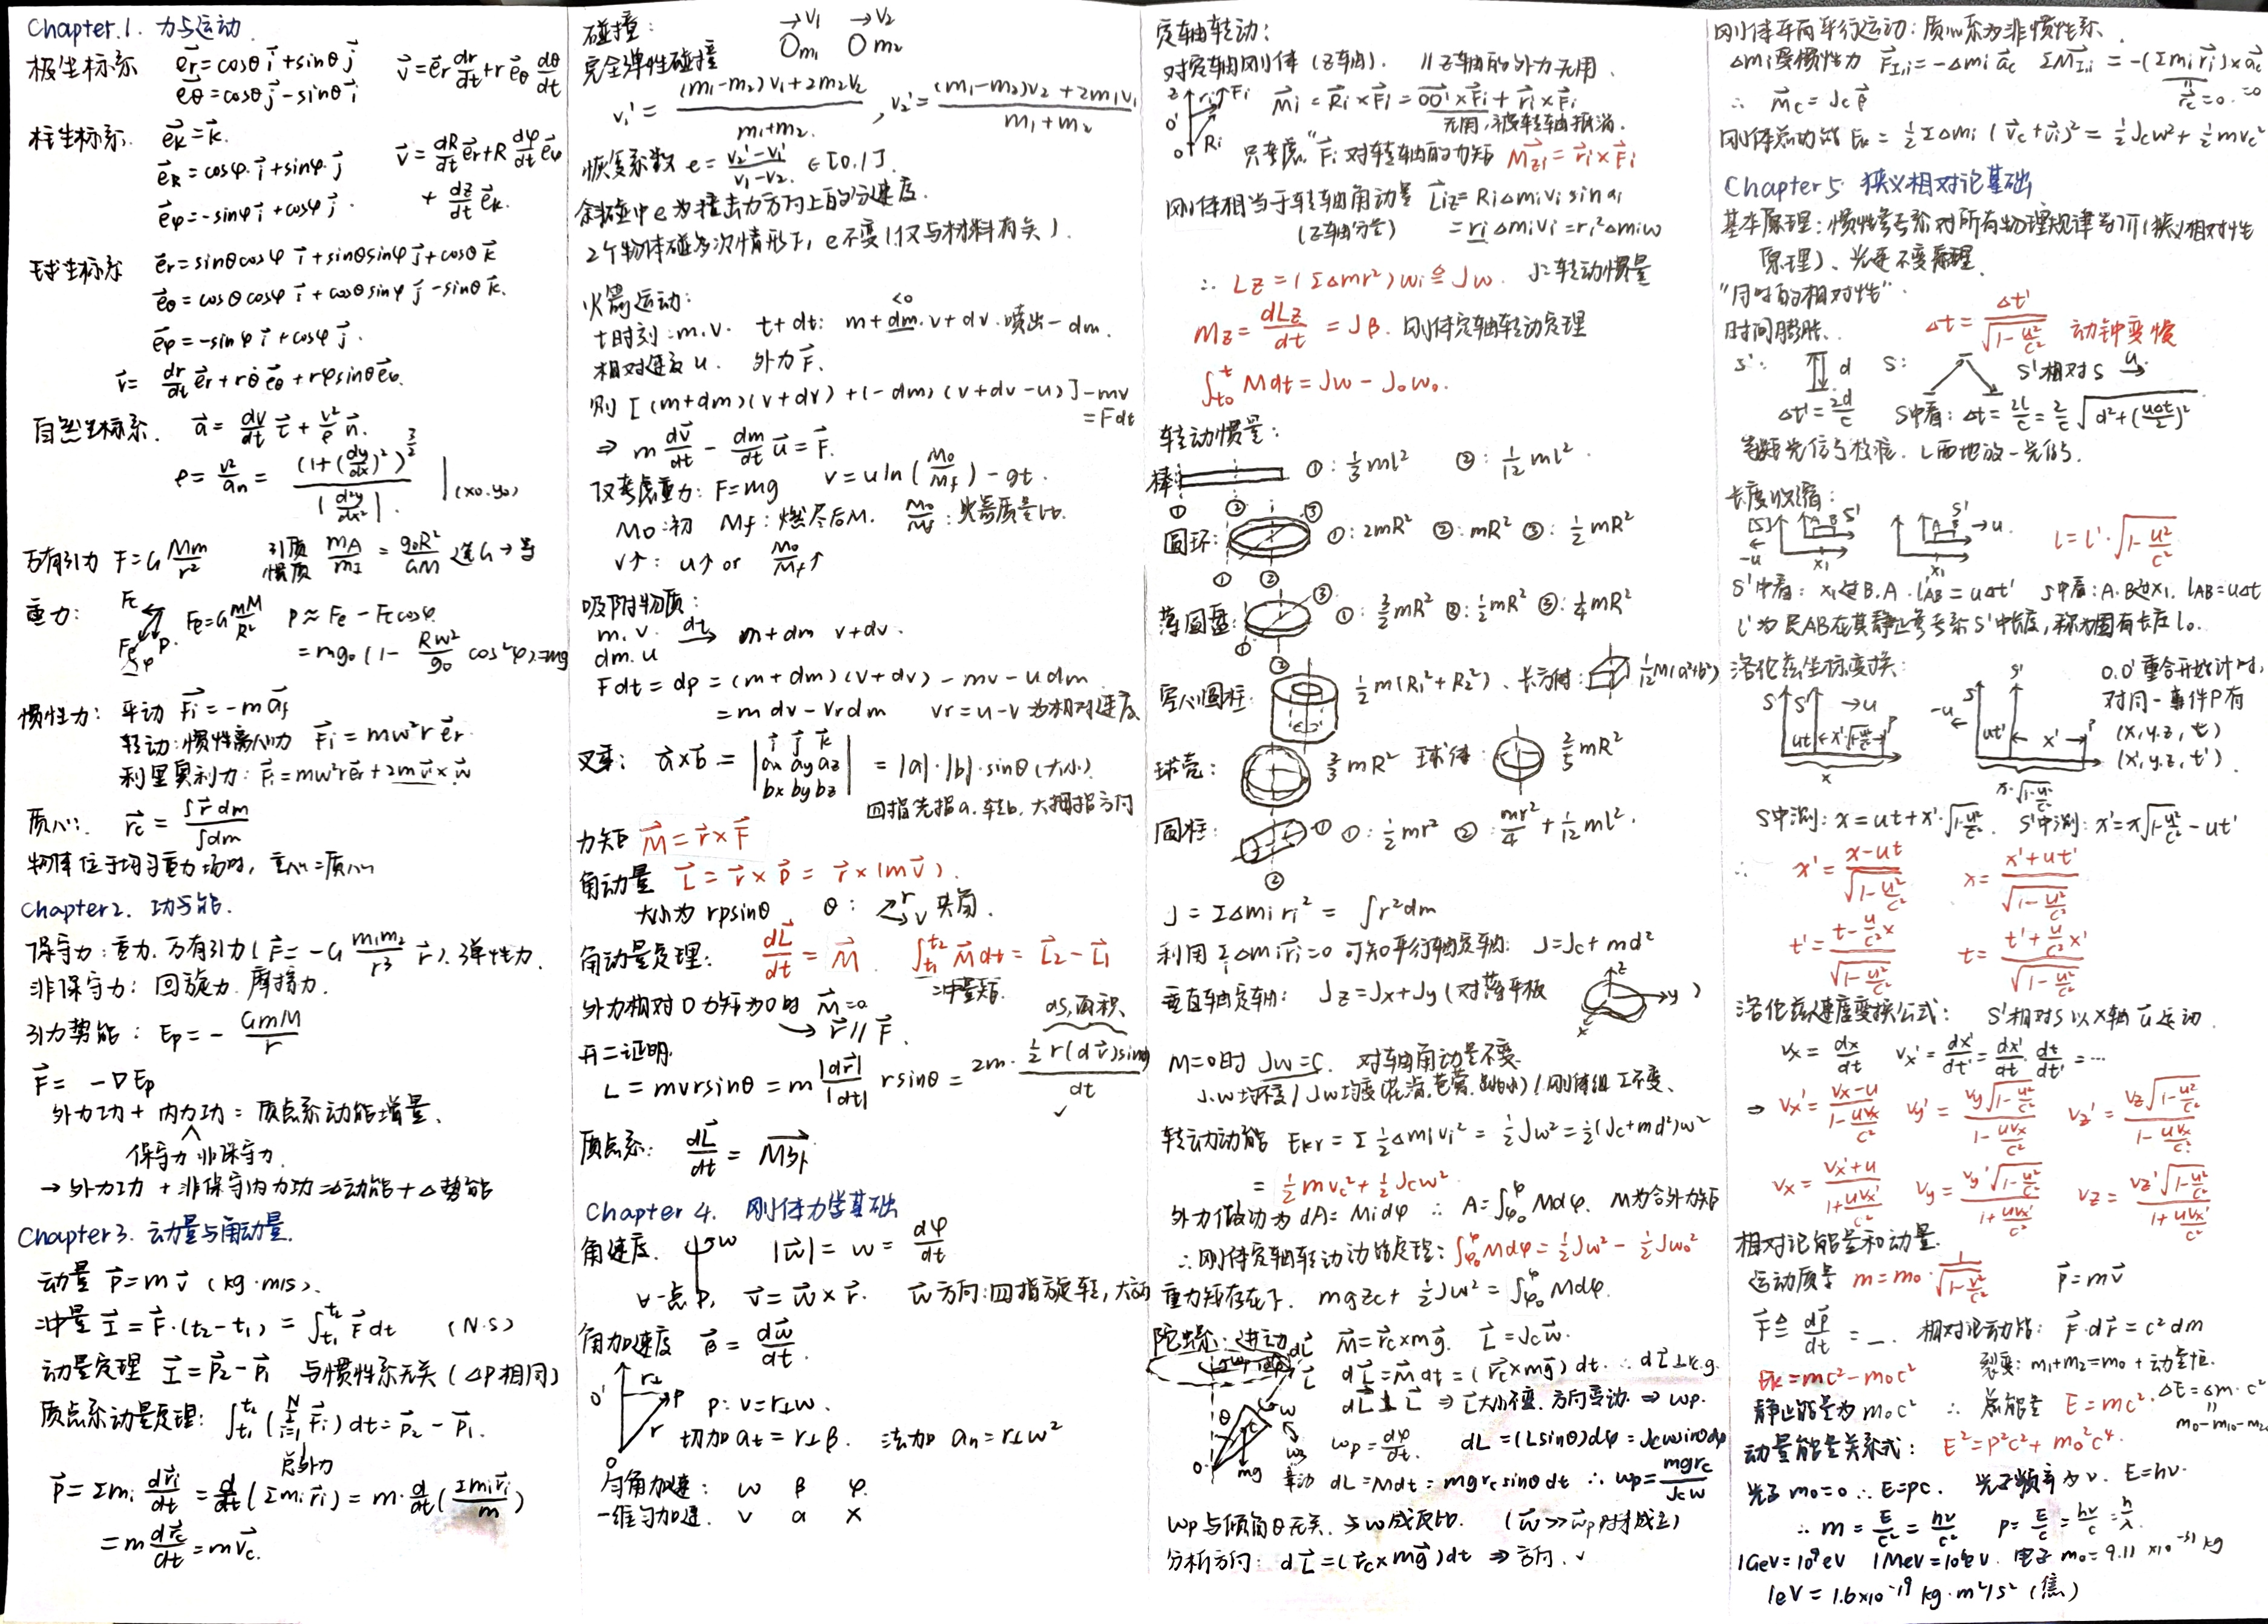 Chapter.1. 力与运动
极坐标系 e⃗r=cosθ i⃗+sinθ j⃗ v⃗=e⃗r dr/dt+r e⃗θ dθ/dt
e⃗θ=cosθ j⃗-sinθ i⃗
柱坐标系. e⃗k=k⃗.
e⃗R=cosφ·i⃗+sinφ·j⃗ v⃗=dR/dt e⃗r+R dφ/dt e⃗φ
e⃗φ=-sinφ i⃗+cosφ j⃗. + dz/dt e⃗k.
球坐标系 e⃗r=sinθcosφ i⃗+sinθsinφ j⃗+cosθ k⃗
e⃗θ=cosθcosφ i⃗+cosθsinφ j⃗-sinθ k⃗.
e⃗φ=-sinφ i⃗+cosφ j⃗.
v⃗= dr/dt e⃗r+rθ̇ e⃗θ+rφ̇sinθ e⃗φ.
自然坐标系. a⃗=dv/dt τ⃗+v²/ρ n⃗.
ρ=v²/an=(1+(dy/dx)²)^(3/2)/|d²y/dx²| |(x0,y0)
万有引力 F=G Mm/r² 引质 惯质 mA/mI=g0R²/GM 选G→等
重力: Fe=G mM/R² P≈Fe-Fccosφ
=mg0(1-Rω²/g0 cos²φ)=mg
惯性力: 平动 F⃗i=-m a⃗s
转动:惯性离心力 F⃗i=mω²r e⃗r.
科里奥利力: F⃗i=mω²r e⃗r+2m v⃗'×ω⃗
质心: r⃗c=∫r⃗dm/∫dm
物体位于均匀重力场时, 重心=质心
Chapter2. 功与能.
保守力:重力.万有引力(F⃗=-G m1m2/r³ r⃗).弹性力.
非保守力: 回旋力.摩擦力.
引力势能: Ep=-GmM/r
F⃗=-∇Ep
外力功+内力功=质点系动能增量.
保守力 非保守力.
→外力功+非保守内力功=△动能+△势能
Chapter3. 动量与角动量.
动量 p⃗=mv⃗ (kg·m/s).
冲量 I⃗=F⃗·(t2-t1)=∫t1^t2 F⃗dt (N·S)
动量定理 I⃗=p⃗2-p⃗1 与惯性系无关(△P相同)
质点系动量定理: ∫t1^t2(Σi=1^N F⃗i)dt=p⃗2-p⃗1.
总外力
p⃗=Σmi dr⃗i/dt=d/dt(Σmir⃗i)=m·d/dt(Σmir⃗i/m)
=m dr⃗c/dt=mv⃗c.
碰撞: →v1 →v2
m1 m2
完全弹性碰撞
v1'=(m1-m2)v1+2m2v2/m1+m2, v2'=(m1-m2)v2+2m1v1/m1+m2
恢复系数 e=v2'-v1'/v1-v2. ∈[0,1].
斜碰中e为撞击力方向上的分速度.
2个物体碰多次情形下, e不变(仅与材料有关).
火箭运动: <0
t时刻:m.v. t+dt: m+dm.v+dv.喷出-dm.
相对速度u. 外力F⃗.
则[(m+dm)(v+dv)+(-dm)(v+dv-u)]-mv
=Fdt
⇒ m dv⃗/dt - dm/dt u⃗=F⃗.
仅考虑重力: F=mg v=uln(M0/Mf)-gt.
M0:初 Mf:燃尽后M. M0/Mf:火箭质量比.
v↑: u↑ or M0/Mf↑
吸附物质:
m.v. dt→ m+dm v+dv.
dm.u
Fdt=dp=(m+dm)(v+dv)-mv-udm
=mdv-vrdm vr=u-v为相对速度
叉乘: a⃗×b⃗=|i⃗ j⃗ k⃗
ax ay az
bx by bz| =|a|·|b|·sinθ(大小).
四指先指a.转b.大拇指方向
力矩 M⃗=r⃗×F⃗
角动量 L⃗=r⃗×p⃗=r⃗×(mv⃗).
大小为rpsinθ θ: r v 夹角.
角动量定理: dL⃗/dt=M⃗. ∫t1^t2 M⃗dt=L⃗2-L⃗1
冲量矩.
外力相对O力矩为0时 M⃗=0 dS,面积.
→r⃗∥F⃗.
开二证明.
L=mvrsinθ=m|dr⃗|/|dt| rsinθ=2m·½r(dr⃗)sinθ/dt
✓
质点系: dL⃗/dt=M⃗外
Chapter 4. 刚体力学基础
角速度. ω |ω⃗|=ω=dφ/dt
∀一点P, v⃗=ω⃗×r⃗. ω⃗方向:四指旋转,大方向
角加速度 β⃗=dω⃗/dt.
O' r⊥ P r O
P: v=r⊥ω.
切加at=r⊥β. 法加an=r⊥ω²
匀角加速: ω β φ.
一维匀加速. v a x
定轴转动:
对定轴刚体(Z轴). ∥Z轴的外力无用.
z ri Fi O' Ri O M⃗i=R⃗i×F⃗i=OO'×F⃗i+r⃗i×F⃗i
无用,被转轴抵消.
只考虑"F⃗i对转轴的力矩 M⃗zi=r⃗i×F⃗i
刚体相当于转轴角动量 L⃗iz=Ri△miVi sinαi
(Z轴分量) =ri△miVi=ri²△miω
∴ Lz=(Σ△mr²)ωi≙Jω. J=转动惯量
Mz=dLz/dt=Jβ. 刚体定轴转动定理
∫t0^t Mdt=Jω-J0ω0.
转动惯量:
棒 ①:⅓ml² ②:1/12 ml².
① ② ③
圆环: ①:2mR² ②:mR² ③:½mR²
① ② ③
薄圆盘: ①:3/2mR² ②:½mR² ③:¼mR²
① ②
空心圆柱 ½m(R1²+R2²).长方体: 1/12M(a²+b²)
球壳: ⅔mR² 球体: ⅖mR²
圆柱: ① ①:½mr² ②:mr²/4+1/12ml².
②
J=Σ△miri²=∫r²dm
利用Σi△mir⃗i=0可知平行轴定轴: J=Jc+md²
垂直轴定轴: Jz=Jx+Jy(对薄平板 x y z)
M=0时 Jω=C. 对轴角动量不变.
J.ω均不变/Jω均变(花滑.芭蕾.跳水)/刚体组I不变.
转动动能 Ekr=Σ½△miVi²=½Jω²=½(Jc+md²)ω²
=½mvc²+½Jcω²
外力做功为dA=Midφ ∴A=∫φ0^φ Mdφ. M为合外力矩
∴刚体定轴转动动能定理:∫φ0^φ Mdφ=½Jω²-½Jω0²
重力矩存在下. mgzc+½Jω²=∫φ0^φ Mdφ.
陀螺:进动 M⃗=r⃗c×mg⃗. L⃗=Jcω⃗.
dL⃗=M⃗dt=(r⃗c×mg⃗)dt. ∴dL⃗⊥rc.g.
dL⃗⊥L⃗ ⇒L⃗大小不变.方向变动.⇒ωp.
ωp=dφ/dt. dL=(Lsinθ)dφ=Jcωsinθdφ
dL=Mdt=mgrcsinθdt ∴ωp=mgrc/Jcω
ωp与倾角θ无关.与ω成反比. (ω⃗≫ω⃗p时才成立)
分析方向: dL⃗=(r⃗c×mg⃗)dt ⇒方向.✓
刚体平面平行运动:质心系为非惯性系.
△mi受惯性力 F⃗I,i=-△mi a⃗c ΣM⃗I,i=-(Σmir⃗i)×a⃗c
r⃗c=0. =0
∴ M⃗c=Jcβ⃗
刚体总动能 Ek=½Σ△mi(v⃗c+v⃗i)²=½Jcω²+½mvc²
Chapter 5. 狭义相对论基础
基本原理:惯性参考系对所有物理规律等价(狭义相对性
原理)、光速不变原理.
"同时的相对性".
时间膨胀. △t=△t'/√(1-u²/c²) 动钟变慢
S': d S: S'相对S u→
△t'=2d/c S中看:△t=2l/c=2/c√(d²+(u△t/2)²)
长度收缩:
[S] A B S' -u x1 A B S' →u x1 l=l'·√(1-u²/c²)
S'中看:x1过B.A.l'AB=u△t' S中看:A.B过x1. lAB=u△t
l'为尺AB在其静止参考系S'中长度,称为固有长度l0.
洛伦兹坐标变换: O.O'重合开始计时,
对同一事件P有
(x,y,z,t)
(x',y,z,t')
S S' →u ut x'√(1-u²/c²) P x
-u S S' ut' x' P x·√(1-u²/c²)
S中测:x=ut+x'·√(1-u²/c²). S'中测:x'=x√(1-u²/c²)-ut'
∴ x'=x-ut/√(1-u²/c²) x=x'+ut'/√(1-u²/c²)
t'=t-u/c²x/√(1-u²/c²) t=t'+u/c²x'/√(1-u²/c²)
洛伦兹速度变换公式: S'相对S以x轴u⃗运动.
Vx=dx/dt Vx'=dx'/dt'=dx'/dt·dt/dt'=…
⇒ Vx'=Vx-u/1-uVx/c² Vy'=Vy√(1-u²/c²)/1-uVx/c² Vz'=Vz√(1-u²/c²)/1-uVx/c²
Vx=Vx'+u/1+uVx'/c² Vy=Vy'√(1-u²/c²)/1+uVx'/c² Vz=Vz'√(1-u²/c²)/1+uVx'/c²
相对论能量和动量.
运动质量 m=m0·1/√(1-v²/c²) p⃗=mv⃗
F⃗≙dp⃗/dt=—. 相对论动能: F⃗·dr⃗=c²dm
Ek=mc²-m0c² 裂变:m1+m2=m0+动量恒.
静止能量为m0c² ∴总能量 E=mc². △E=△m·c²
m0-m10-m20
动量能量关系式: E²=p²c²+m0²c⁴.
光子m0=0 ∴E=pc. 光子频率为ν. E=hν.
∴ m=E/c²=hν/c² p=E/c=hν/c=h/λ.
1GeV=10⁹eV 1MeV=10⁶eV. 电子m0=9.11×10⁻³¹kg
1eV=1.6×10⁻¹⁹kg·m²/s²(焦)